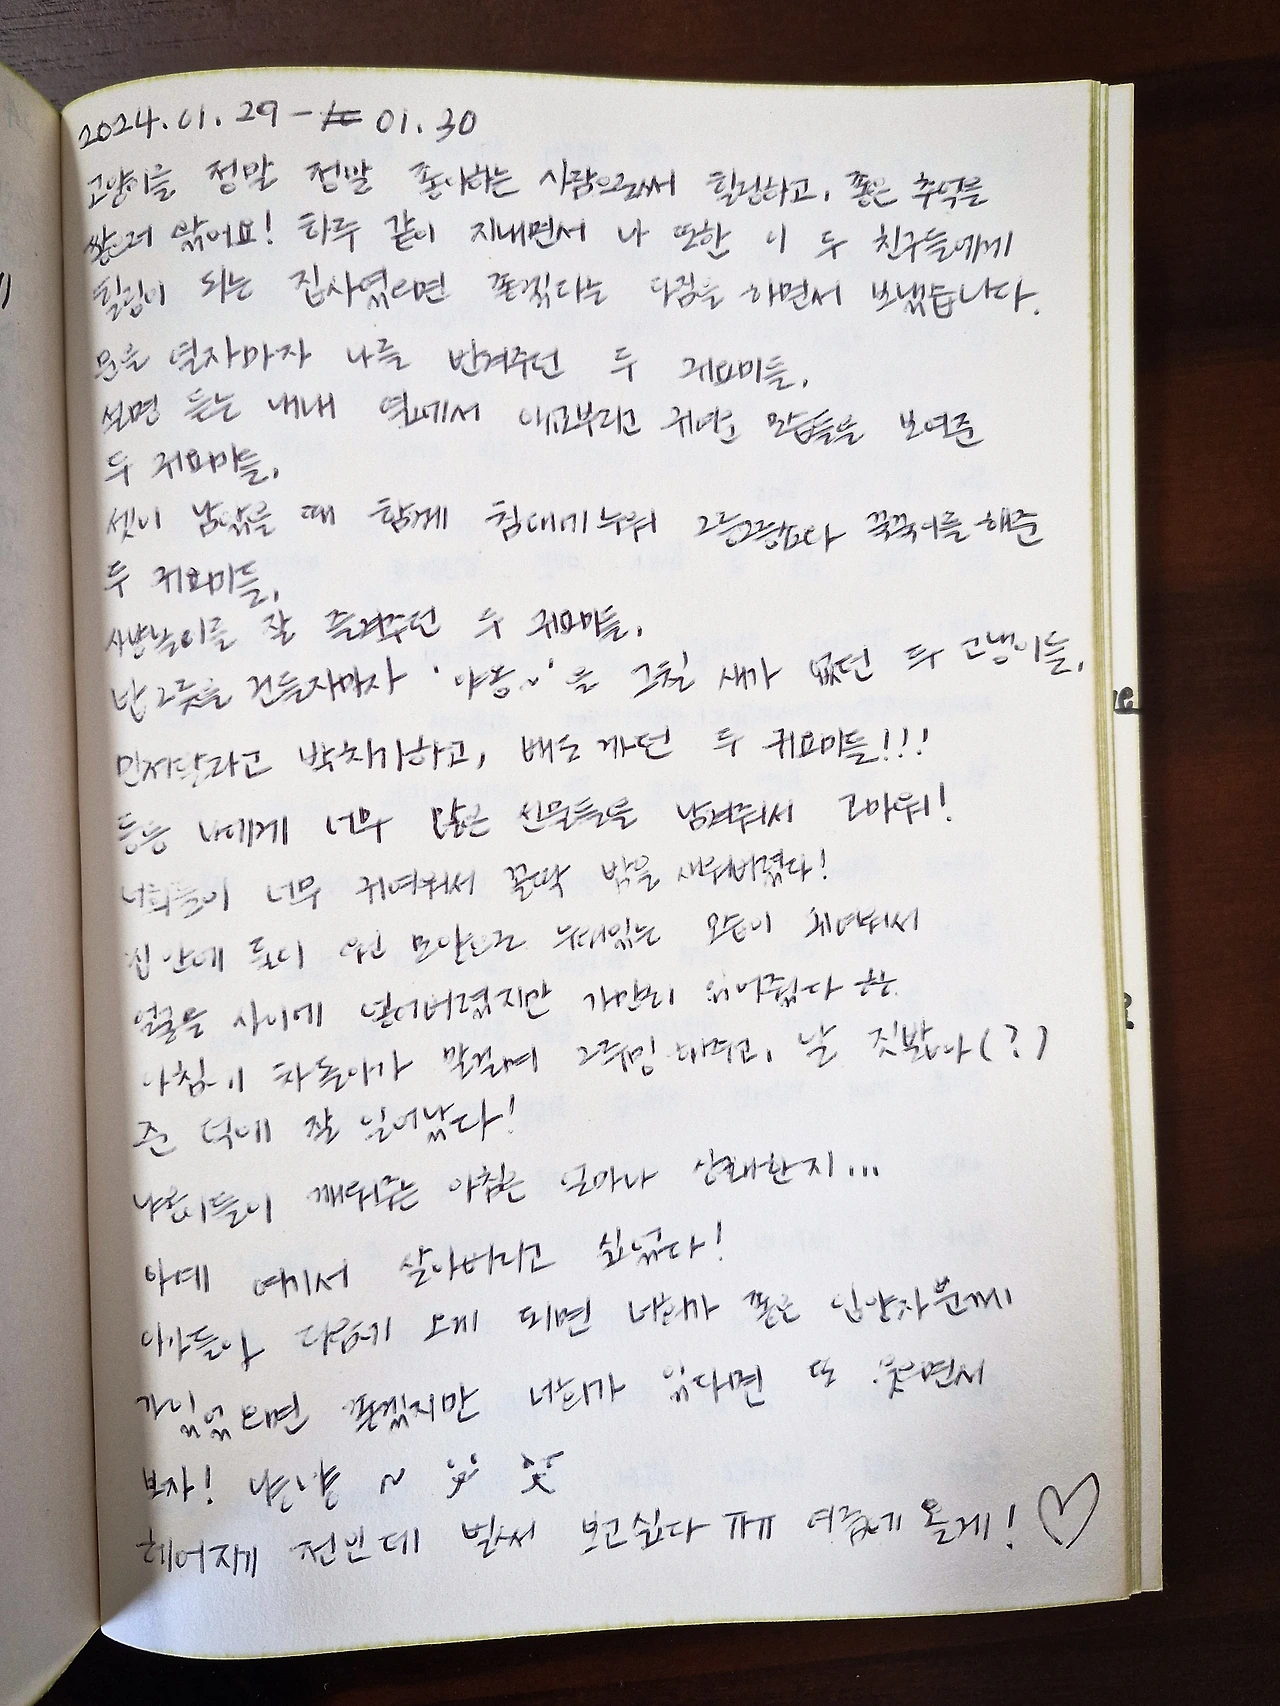 2024.01.29 - 01.30
고양이를 정말 정말 좋아하는 사람으로써 힐링하고, 좋은 추억을
쌓으러 왔어요! 하루 같이 지내면서 나 또한 이 두 친구들에게
힐링이 되는 집사였으면 좋겠다는 다짐을 하면서 보냈습니다.
문을 열자마자 나를 반겨주던 두 귀요미들.
설명 듣는 내내 옆에서 애교부리고 귀여운 모습들을 보여준
두 귀요미들.
셋이 남았을 때 함께 침대에 누워 그릉그릉과 꾹꾹이를 해준
두 귀요미들.
사냥놀이를 잘 즐겨주던 두 귀요미들.
밥그릇을 건들자마자 '야옹~'을 그칠 새가 없던 두 고냥이들.
만져달라고 박치기하고, 배도 까던 두 귀요미들!!!
등등 나에게 너무 많은 선물들을 남겨줘서 고마워!
너희들이 너무 귀여워서 꼴딱 밤을 새워버렸다!
집 안에 둘이 원 모양으로 누워있는 모습이 귀여워서
얼굴을 사이에 넣어버렸지만 가만히 있어줬다
아침에 차돌이가 말걸며 그루밍 해주고, 날 짓밟아(?)
준 덕에 잘 일어났다!
냥이들이 깨워주는 아침은 얼마나 상쾌한지...
아예 여기서 살아버리고 싶었다!
아가들아 다음에 오게 되면 너희가 좋은 입양자분께
가있었으면 좋겠지만 너희가 있다면 또 웃으면서
보자! 냥냥 ~
헤어지기 전인데 벌써 보고싶다 ㅠㅠ 여름에 올게! ♡